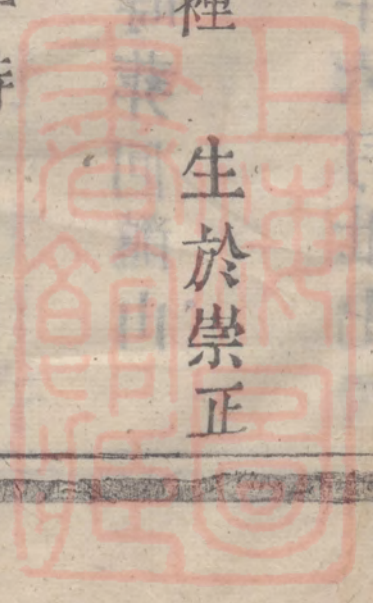 生於崇正
上海圖
書館藏